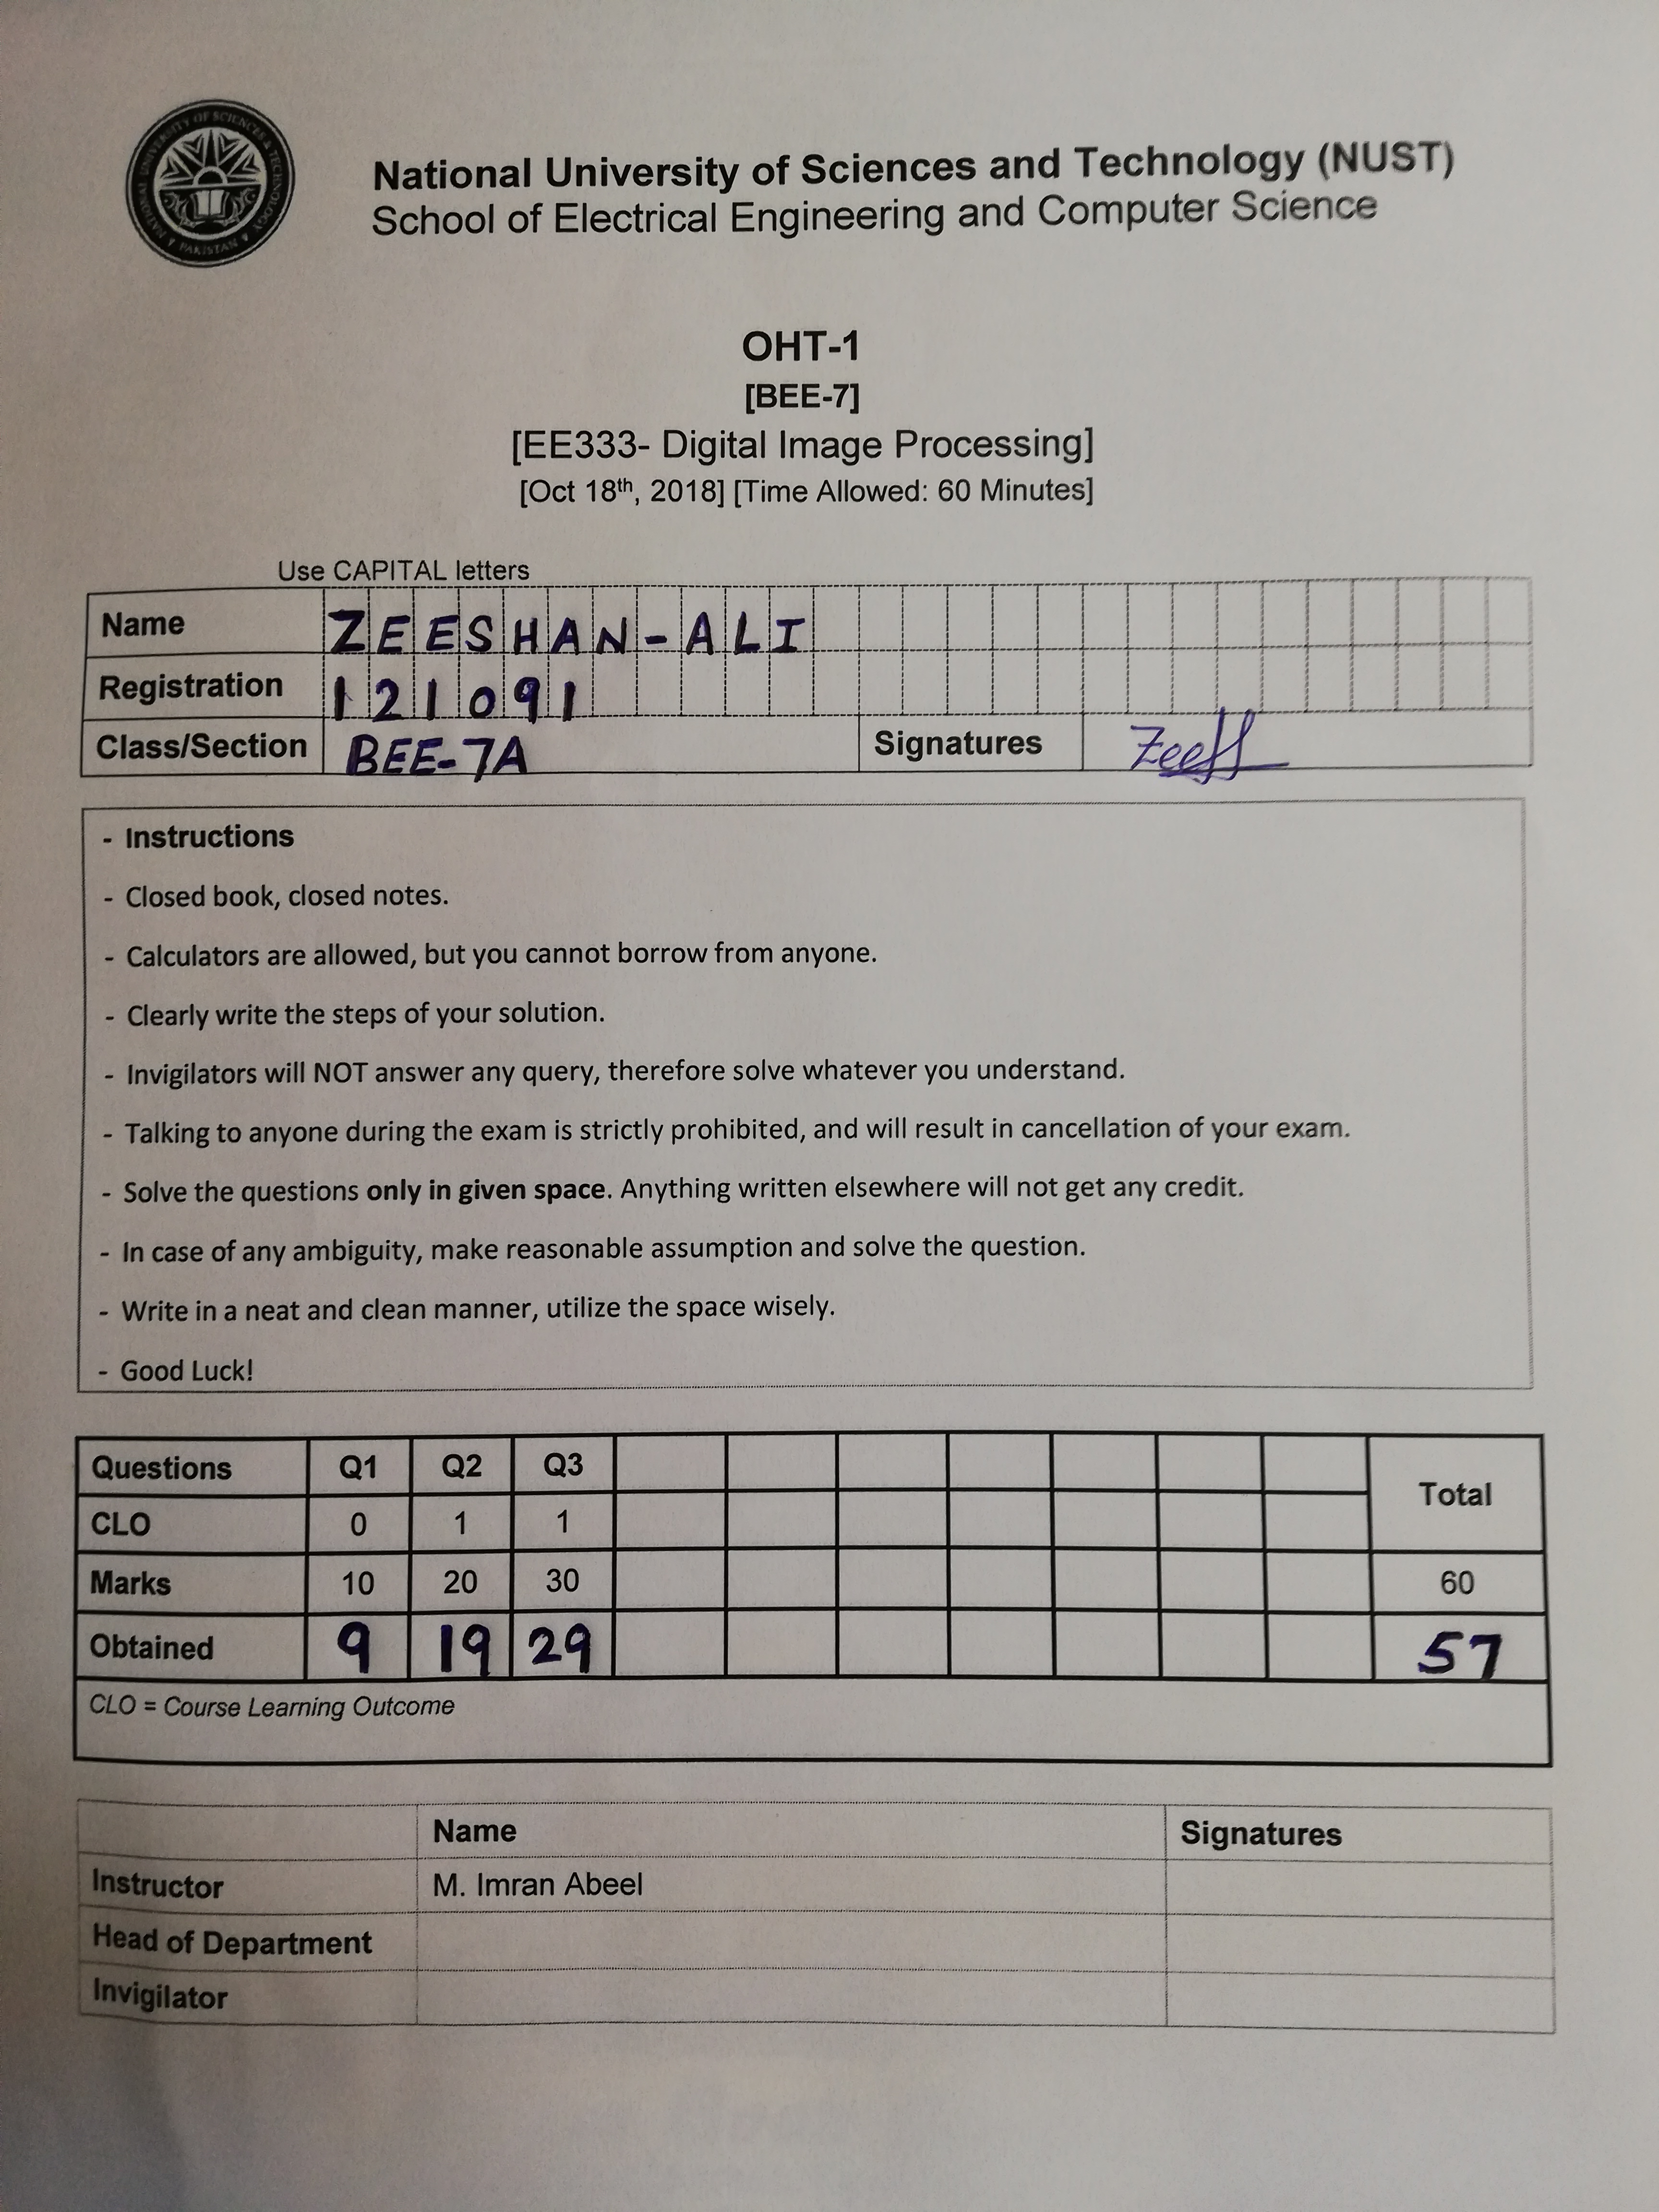 NATIONAL UNIVERSITY OF SCIENCES & TECHNOLOGY
PAKISTAN
National University of Sciences and Technology (NUST)
School of Electrical Engineering and Computer Science
OHT-1
[BEE-7]
[EE333- Digital Image Processing]
[Oct 18th, 2018] [Time Allowed: 60 Minutes]
Use CAPITAL letters
Name ZEESHAN-ALI
Registration 121091
Class/Section BEE-7A Signatures
- Instructions
- Closed book, closed notes.
- Calculators are allowed, but you cannot borrow from anyone.
- Clearly write the steps of your solution.
- Invigilators will NOT answer any query, therefore solve whatever you understand.
- Talking to anyone during the exam is strictly prohibited, and will result in cancellation of your exam.
- Solve the questions only in given space. Anything written elsewhere will not get any credit.
- In case of any ambiguity, make reasonable assumption and solve the question.
- Write in a neat and clean manner, utilize the space wisely.
- Good Luck!
Questions Q1 Q2 Q3 Total
CLO 0 1 1
Marks 10 20 30 60
Obtained 9 19 29 57
CLO = Course Learning Outcome
Name Signatures
Instructor M. Imran Abeel
Head of Department
Invigilator